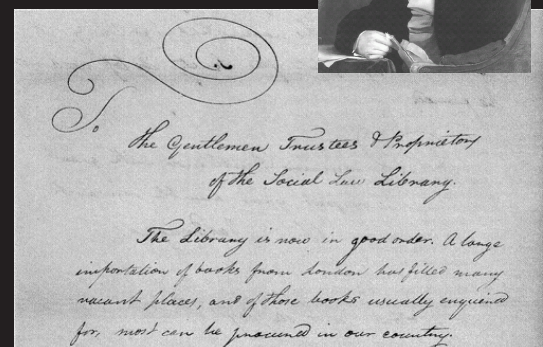 To
the Gentlemen Trustees & Proprietors
of the Social Law Library.
The Library is now in good order. A large
importation of books from London has filled many
vacant places, and of those books usually enquired
for, most can be procured in our country.